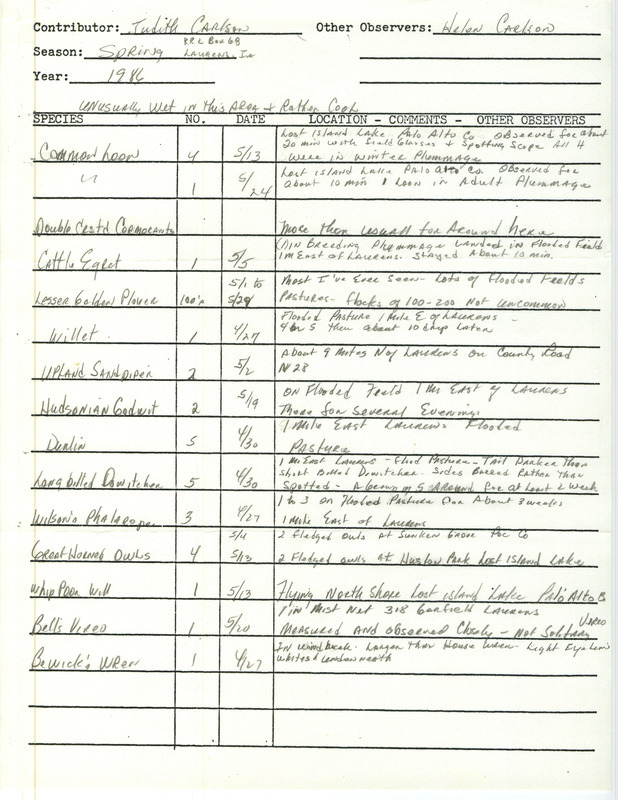 Contributor: Judith Carlson Other Observers: Helen Carlson
RR 2 Box 68
Season: Spring Laurens, Ia
Year: 1986
Unusually Wet in this Area & Rather Cool
SPECIES NO. DATE LOCATION - COMMENTS - OTHER OBSERVERS
Lost Island Lake Palo Alto Co Observed for about
20 min with Field Glasses & Spotting Scope All 4
Common Loon 4 5/13 were in winter Plummage
Lost Island Lake Palo Alto Co. Observed for
" 1 5/24 about 10 min 1 Loon in Adult Plummage
Double Crstd Cormorants More then usuall for Around here
(1) in Breeding Plummage Landed in Flooded Field
Cattle Egret 1 5/5 1 m East of Laurens. Stayed About 10 min.
5/1 to Most I've Ever Seen - Lots of Flooded Fields
Lesser Golden Plover 100's 5/29 Pastures - Flocks of 100-200 Not uncommon
Flooded Pasture 1 mile E of Laurens -
Willet 1 4/27 4 or 5 then about 10 days Later
About 9 Miles N of Laurens on County Road
Upland Sandpiper 2 5/2 N 28
On Flooded Field 1 Mi East of Laurens
Hudsonian Godwit 2 5/19 There for Several Evenings
1 Mile East Laurens Flooded
Dunlin 5 4/30 Pasture
1 Mi East Laurens - Flood Pasture - Tail Darker than
Short Billed Dowitcher - Sides Barred Rather than
Long billed Dowitcher 5 4/30 Spotted - A of 5 Around for at Least 2 week
1 to 3 on Flooded Pasture for About 3 weeks
Wilson's Phalarope 3 4/27 1 Mile East of Laurens
5/4 2 Fledged Owls at Sunken Grove Poc Co
Great Horned Owls 4 5/13 2 Fledged owls at Huston Park Lost Island Lake
Whip Poor Will 1 5/13 Flying North Shore Lost island Lake Palo Alto Co
1 in Mist Net 318 Garfield Laurens
Bell's Vireo 1 5/20 Measured and Observed Closely - Not Solitary Vireo
In wind break. Larger than House Wren - Light Eye Line
Bewick's Wren 1 4/27 Whitish underneath